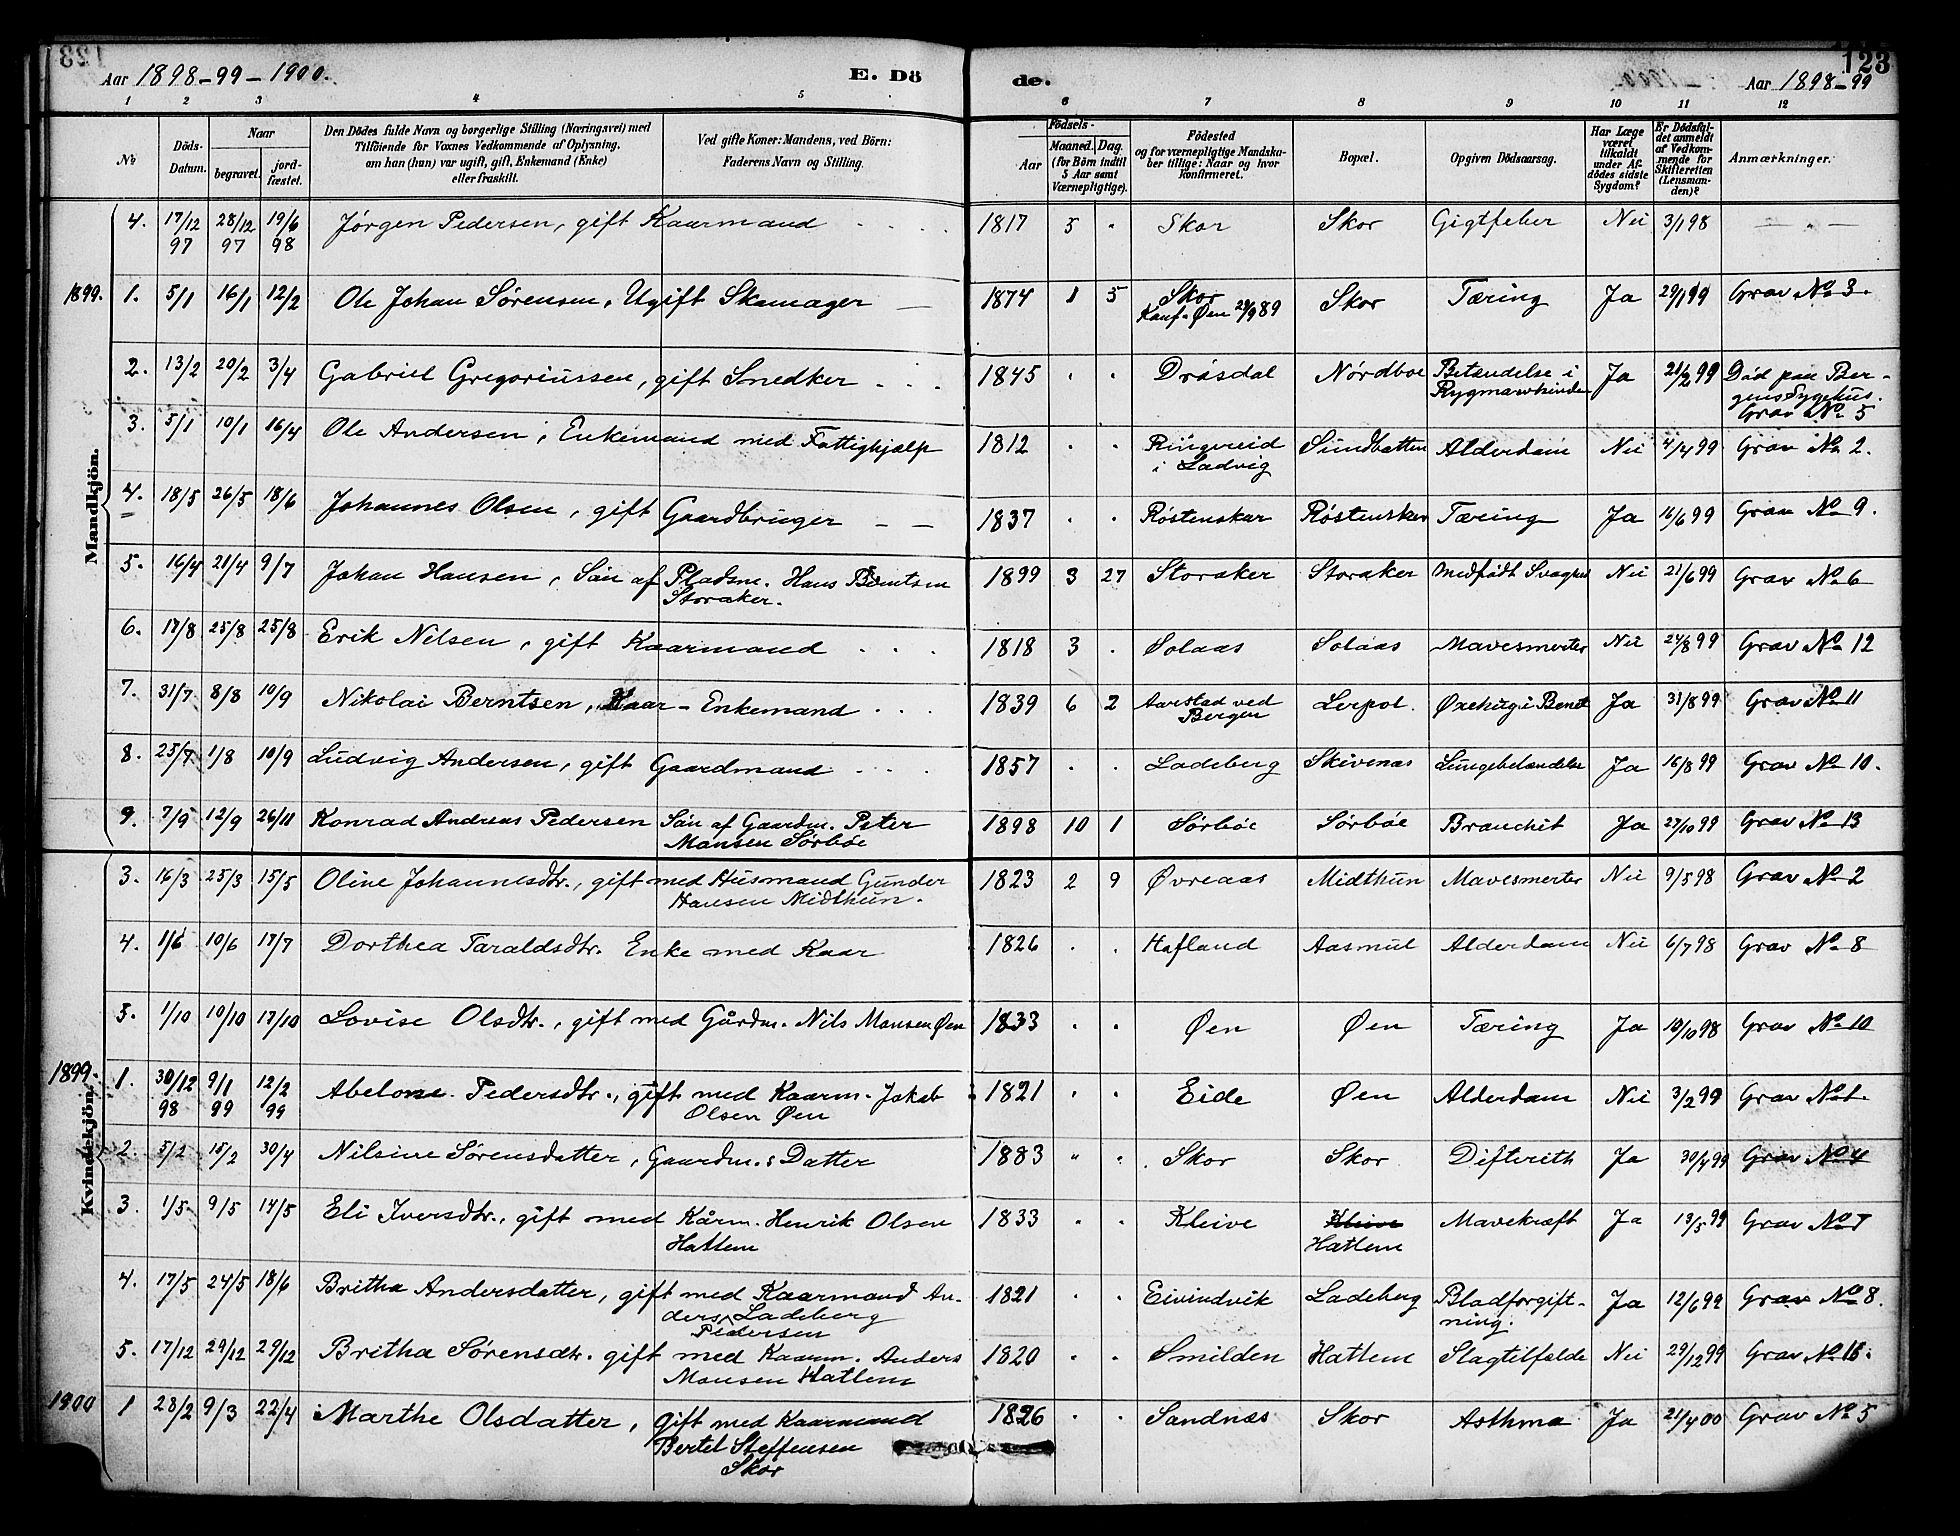 Aar 1898-99-1900. E. Dö
de. Aar 1898-99
123
1 2 3 4 5 6 7 8 9 10 11 12
№ Döds-Datum. Naar begravet. jordfæstet. Den Dödes fulde Navn og borgerlige Stilling (Næringsvei) med Tilföiende for Voxnes Vedkommende af Oplysning, om han (hun) var ugift, gift, Enkemand (Enke) eller fraskilt. Ved gifte Koner: Mandens, ved Börn: Faderens Navn og Stilling. Födsels- Aar Maaned. Dag. (for Börn indtil 5 Aar samt Værnepligtige). Födested og for værnepligtige Mandskaber tillige: Naar og hvor Konfirmeret. Bopæl. Opgiven Dödsaarsag. Har Læge været tilkaldt under Afdödes sidste Sygdom? Er Dödsfaldet anmeldt af Vedkommende for Skifteretten (Lensmanden)? Anmærkninger.
Mandkjön.
4. 17/12 97 28/12 97 19/6 98 Jørgen Pedersen, gift Kaarmand 1817 5 " Skor Skor Gigtfeber Nei 3/1 98 — " —
1899. 1. 5/1 16/1 12/2 Ole Johan Sørensen, Ugift Skomager — 1874 1 5 Skor Konf. Øen 29/9 89 Skor Tæring Ja 29/1 99 Grav № 3.
2. 13/2 20/2 3/4 Gabriel Gregoriussen, gift Snedker 1845 " " Drøsdal Nordboe Betændelse i Rygmarvhinden Ja 21/2 99 Død paa Bergens Sygehus. Grav № 5
3. 5/1 10/1 16/4 Ole Andersen, Enkemand med Fattighjælp 1812 " " Ringereid i Ladvig Sundbotten Alderdom Nei 4/4 99 Grav № 2.
4. 18/5 26/5 18/6 Johannes Olsen, gift Gaardbruger — — 1837 " " Røstenskar Røstenskar Tæring Ja 16/6 99 Grav № 9.
5. 16/4 21/4 9/7 Johan Hansen, Søn af Pladsm. Hans Berntsen Storaker. 1899 3 27 Storaker Storaker Medfødt Svaghed Nei 21/6 99 Grav № 6
6. 17/8 25/8 25/8 Erik Nilsen, gift Kaarmand 1818 3 . Solaas Solaas Mavesmerter Nei 24/8 99 Grav № 12
7. 31/7 8/8 10/9 Nikolai Berntsen, Kaar-Enkemand 1839 6 2 Aarestad ved Bergen Lerpol. Øxehug i Benet Ja 31/8 99 Grav № 11
8. 25/7 1/8 10/9 Ludvig Andersen, gift Gaardmand 1857 . . Ladeberg Skivenæs Lungebetændelse Ja 16/8 99 Grav № 10.
9. 7/9 12/9 26/11 Konrad Andreas Pedersen Søn af Gaardm. Peter Monsen Sørbøe 1898 10 1 Sørbøe Sørbøe Bronchit Ja 27/10 99 Grav № 13
Kvindekjön.
3. 16/3 25/3 15/5 Oline Johannesdtr., gift med Husmand Gunder Hansen Midthun. 1823 2 9 Øvreaas Midthun Mavesmerter Nei 9/5 98 Grav № 2
4. 1/6 10/6 17/7 Dorthea Taraldsdtr. Enke med Kaar 1826 . . Hafland Aasmul Alderdom Nei 6/7 98 Grav № 8
5. 1/10 10/10 17/10 Lovise Olsdtr., gift med Gårdm. Nils Monsen Øen 1833 " " Øen Øen Tæring Ja 10/10 98 Grav № 10
1899. 1. 30/12 98 9/1 99 12/2 99 Abelone Pedersdtr., gift med Kaarm. Jakob Olsen Øen 1821 " " Eide Øen Alderdom Nei 3/2 99 Grav № 1.
2. 5/2 15/2 30/4 Nilsine Sørensdatter, Gaardm.s Datter 1883 " " Skor Skor Difterith Ja 30/4 99 Grav № 4
3. 1/5 9/5 14/5 Eli Iversdtr., gift med Kårm. Henrik Olsen Hattem 1833 " " Kleive Kleive Hattem Mavekræft Ja 13/5 99 Grav № 7
4. 17/5 24/5 18/6 Britha Andersdatter, gift med Kaarmand Anders Pedersen Ladeberg 1821 . . Eivindvik Ladeberg Blodforgiftning. Ja 12/6 99 Grav № 8.
5. 17/12 29/12 29/12 Britha Sørensdtr. gift med Kaarm. Anders Monsen Hattem 1820 " " Smilden Hattem Slagtilfælde Nei 29/12 99 Grav №
1900 1 28/2 9/3 22/4 Marthe Olsdatter, gift med Kaarmand Bertel Steffensen Skor 1826 . . Sandnæs Skor Asthma Ja 21/4 00 Grav № 5